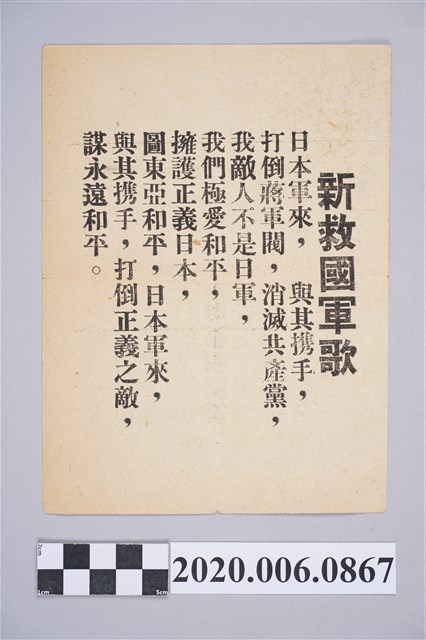 新救國軍歌
日本軍來，與其携手，
打倒蔣軍閥，消滅共產黨，
我敵人不是日軍，
我們極愛和平，
擁護正義日本，
圖東亞和平，日本軍來，
與其携手，打倒正義之敵，
謀永遠和平。
2cm
1cm
5cm
2020.006.0867